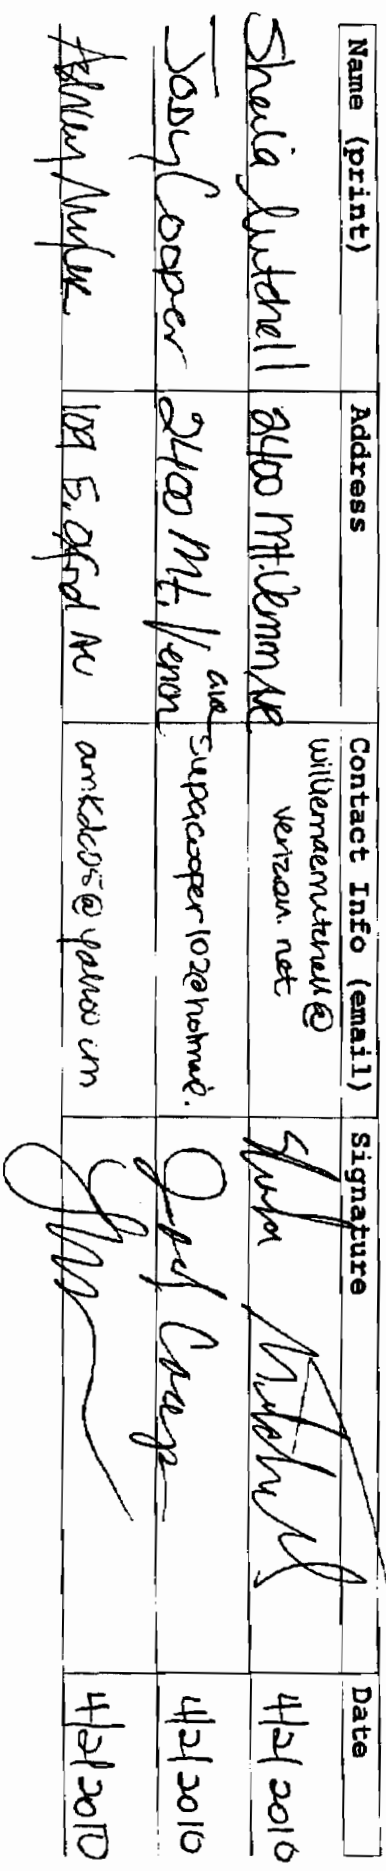 Name (print) Address Contact Info (email) Signature Date
Sheila Mitchell 2400 Mt. Vernon Ave williemaemitchell@
verizon.net Sheila Mitchell 4/2/2010
Jody Cooper 2400 Mt. Vernon ave supacooper102@hotmail. Jody Cooper 4/2/2010
Ashley 109 E. Ave amkdc05@yahoo 4/2/2010